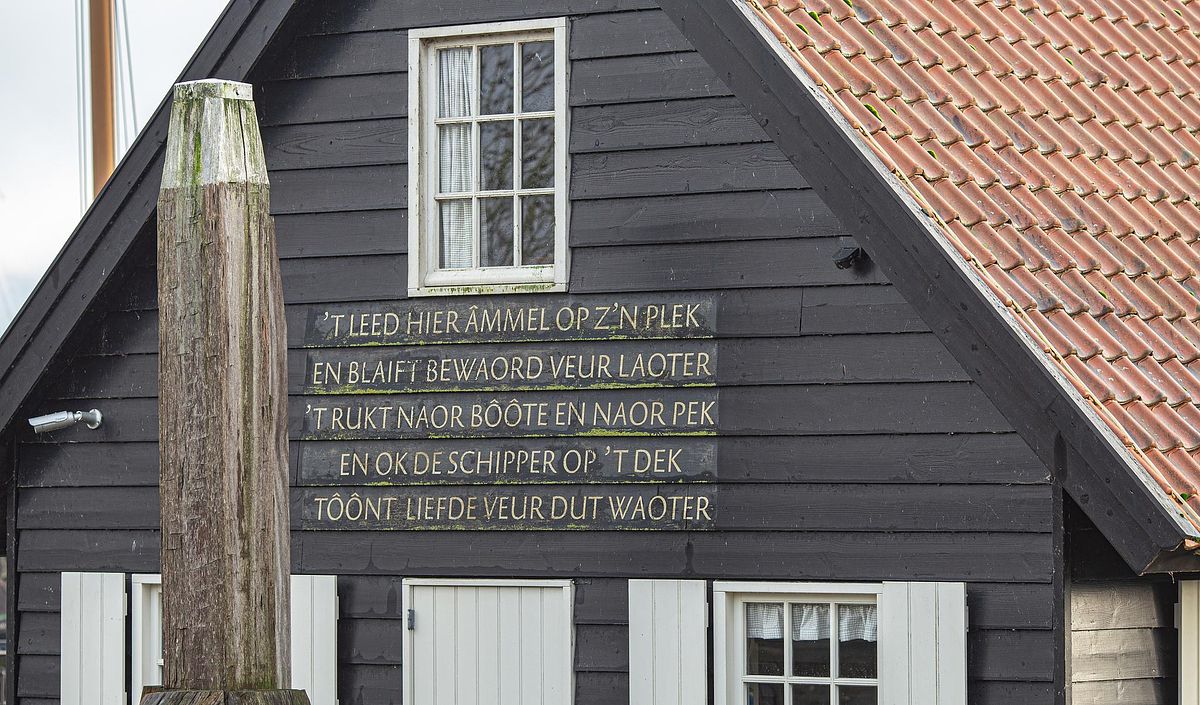 ’T LEED HIER ÂMMEL OP Z’N PLEK
EN BLAIFT BEWAORD VEUR LAOTER
’T RUKT NAOR BÔÔTE EN NAOR PEK
EN OK DE SCHIPPER OP ’T DEK
TÔÔNT LIEFDE VEUR DUT WAOTER